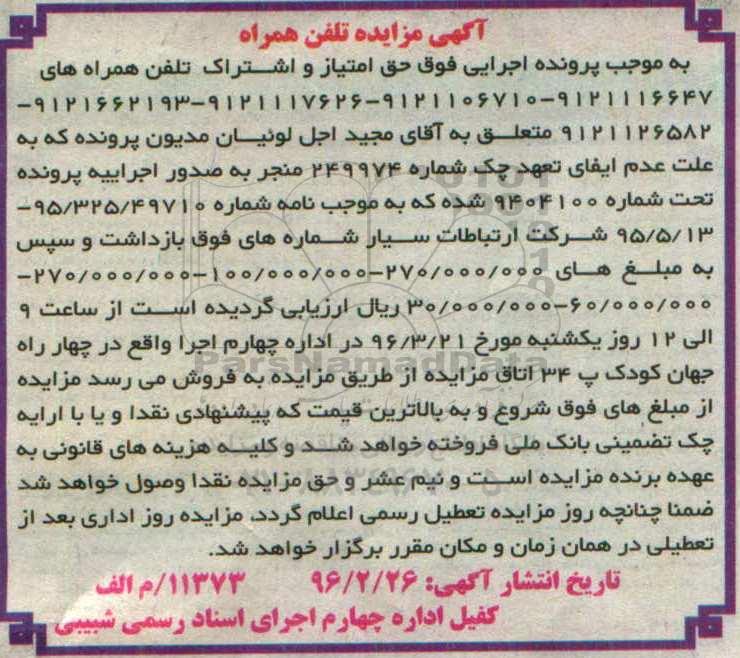 آگهی مزایده تلفن همراه
به موجب پرونده اجرایی فوق حق امتیاز و اشتراک تلفن همراه های
۹۱۲۱۱۱۶۶۴۷-۹۱۲۱۱۰۶۷۱۰-۹۱۲۱۱۱۷۶۲۶-۹۱۲۱۶۶۲۱۹۳-
۹۱۲۱۱۲۶۵۸۲ متعلق به آقای مجید اجل لوئیان مدیون پرونده که به
علت عدم ایفای تعهد چک شماره ۲۴۹۹۷۴ منجر به صدور اجراییه پرونده
تحت شماره ۹۴۰۴۱۰۰ شده که به موجب نامه شماره ۹۵/۳۲۵/۴۹۷۱۰-
۹۵/۵/۱۳ شرکت ارتباطات سیار شماره های فوق بازداشت و سپس
به مبلغ های ۲۷۰/۰۰۰/۰۰۰-۱۰۰/۰۰۰/۰۰۰-۲۷۰/۰۰۰/۰۰۰-
۶۰/۰۰۰/۰۰۰-۳۰/۰۰۰/۰۰۰ ریال ارزیابی گردیده است از ساعت ۹
الی ۱۲ روز یکشنبه مورخ ۹۶/۳/۲۱ در اداره چهارم اجرا واقع در چهار راه
جهان کودک پ ۳۴ اتاق مزایده از طریق مزایده به فروش می رسد مزایده
از مبلغ های فوق شروع و به بالاترین قیمت که پیشنهادی نقدا و یا با ارایه
چک تضمینی بانک ملی فروخته خواهد شد و کلیه هزینه های قانونی به
عهده برنده مزایده است و نیم عشر و حق مزایده نقدا وصول خواهد شد
ضمنا چنانچه روز مزایده تعطیل رسمی اعلام گردد، مزایده روز اداری بعد از
تعطیلی در همان زمان و مکان مقرر برگزار خواهد شد.
تاریخ انتشار آگهی: ۹۶/۲/۲۶ ۱۱۳۷۳/م الف
کفیل اداره چهارم اجرای اسناد رسمی شبیبی
ParsNamadData